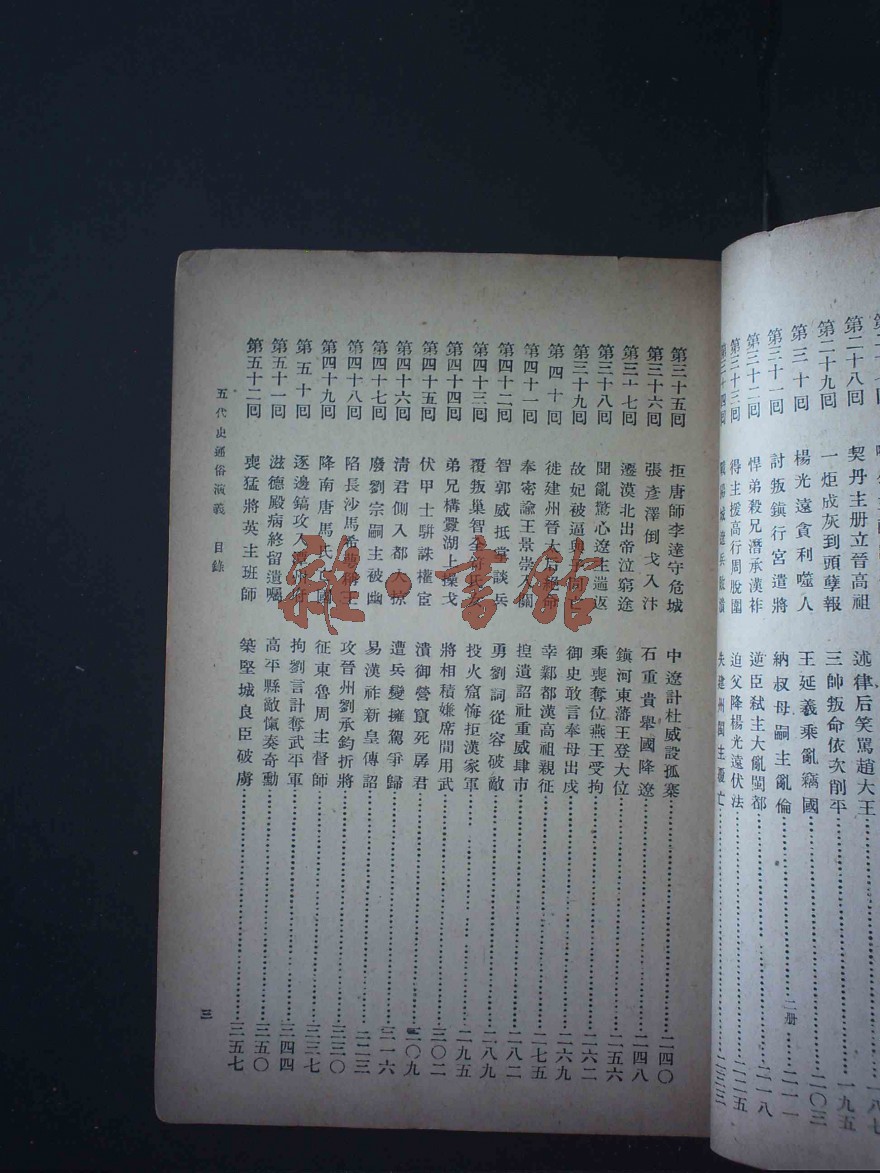 第二十八回 契丹主册立晉高祖 述律后笑罵趙大王 一八七
第二十九回 一炬成灰到頭孽報 三帥叛命依次削平 一九五
第三十回 楊光遠貪利噬人 王延羲乘亂竊國 二〇三
二册
第三十一回 討叛鎭行宮遣將 納叔母嗣主亂倫 二一一
第三十二回 悍弟殺兄潛承漢祚 逆臣弑主大亂閩都 二一八
第三十三回 得主援高行周脫圍 迫父降楊光遠伏法 二二五
第三十四回 城遼兵敗潰 失建州閩主覆亡 二三三
第三十五回 拒唐師李達守危城 中遼計杜威設孤寨 二四〇
第三十六回 張彥澤倒戈入汴 石重貴舉國降遼 二四八
第三十七回 遷漠北出帝泣窮途 鎭河東藩王登大位 二五六
第三十八回 聞亂驚心遼主遄返 乘喪奪位燕王受拘 二六二
第三十九回 故妃被逼與子同亡 御史敢言奉母出戍 二六九
第四十回 徙建州晉太后絕命 幸鄴都漢高祖親征 二七五
第四十一回 奉密諭王景崇入關 捏遺詔社重威肆市 二八二
第四十二回 智郭威抵掌談兵 勇劉詞從容破敵 二八九
第四十三回 覆叛巢智全符氏女 投火窟悔拒漢家軍 二九五
第四十四回 弟兄構釁湖上操戈 將相積嫌席間用武 三〇二
第四十五回 伏甲士駢誅權宦 潰御營竄死孱君 三〇九
第四十六回 淸君側入都大掠 遭兵變擁駕爭歸 三一六
第四十七回 廢劉宗嗣主被幽 易漢祚新皇傳詔 三二三
第四十八回 陷長沙馬希萼稱王 攻晉州劉承鈞折將 三三〇
第四十九回 降南唐馬氏亡國 征東魯周主督師 三三七
第五十回 逐邊鎬攻入潭州府 拘劉言計奪武平軍 三四四
第五十一回 滋德殿病終留遺囑 高平縣敵愾奏奇勳 三五〇
第五十二回 喪猛將英主班師 築堅城良臣破虜 三五七
五代史通俗演義 目錄
三
雜·書館